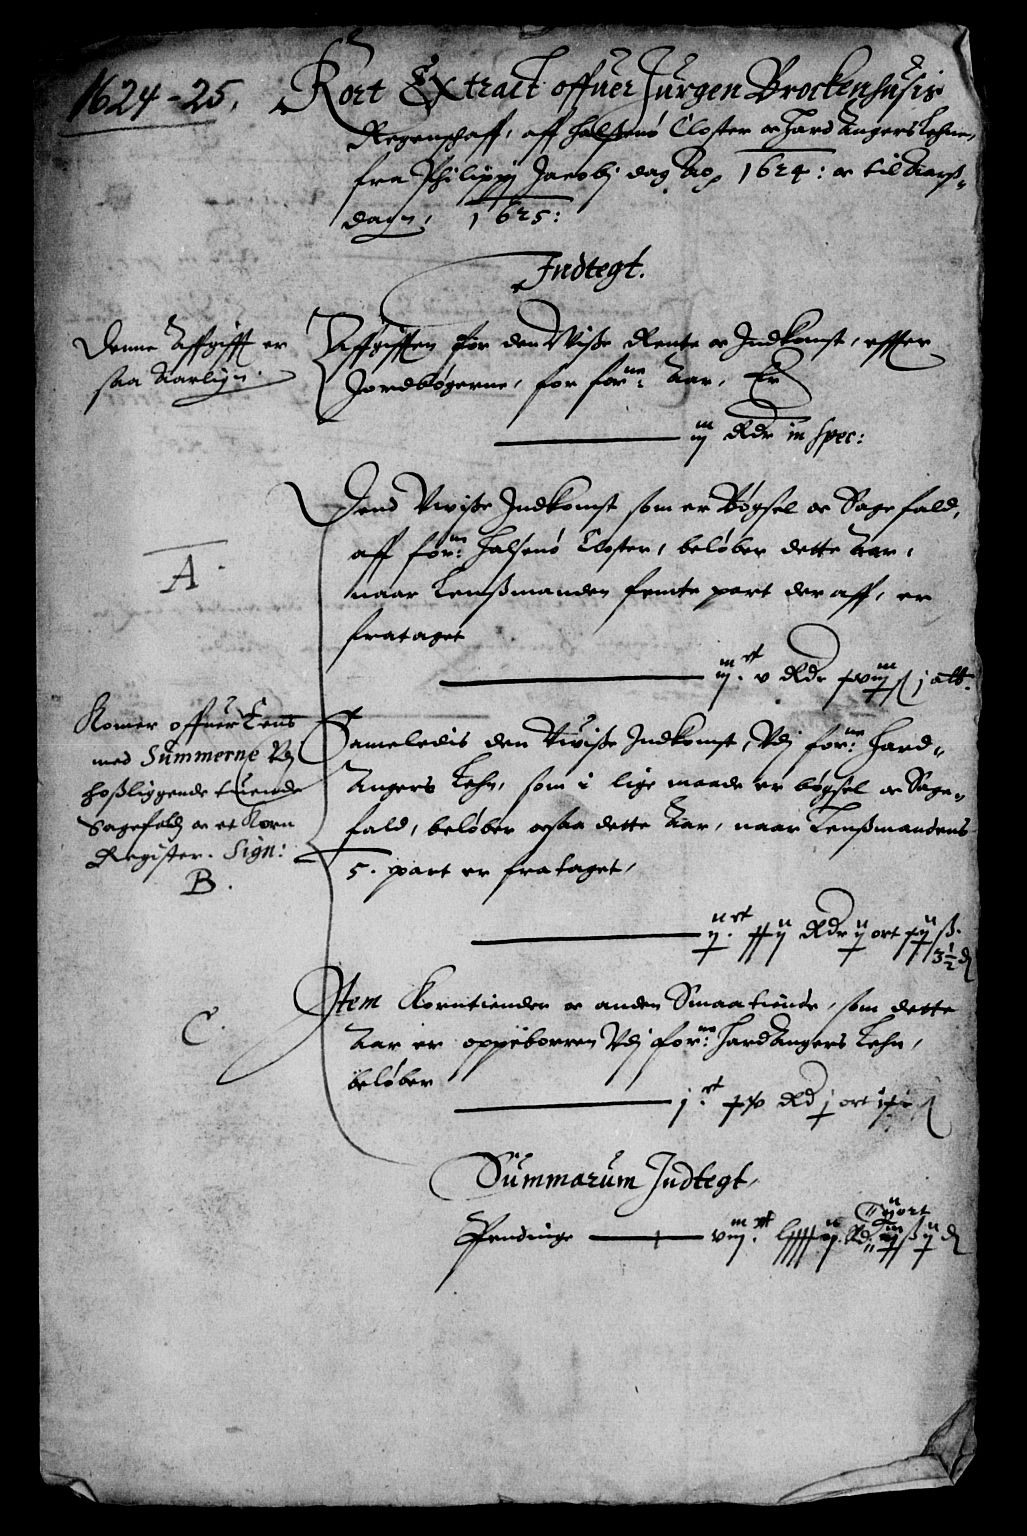 1624-25.
Kort Extract offuer Jürgen Brockenhusis
Regenschaff, aff Halsnø Closter oc Hardangers Lehne,
fra Philippj Jacobj dag Ao 1624: oc til Aarß
dagn, 1625:
Indtegt.
Denne Affgifft er
saa Aarligen.
Affgifften for den Visse Rente oc Indkomst, effter
Jordbøgerne, for forne: Aar, Er
iijm Rdr in spec:
A
Dend Uvisse Indkomst som er Bøgsel oc Sagefald,
aff forne: Halsenø Closter, beløber dette Aar,
naar Lenßmanden femte part der aff, er
frataget
v Rdr j alb.
Komer offuer Eens
med Summerne Vdj
hoßliggende tuende
Sagefald oc et Korn
Register. Sign:
B.
Sameledis den Uvisse Indkomst, Vdj forne: Hard
Angers Lehn, som i lige maade er bøgsel oc Sage
fald, beløber ocsaa dette Aar, naar Lenßmandens
5. part er frataget,
Rdr ij ort ß.
3½ d
C.
Item Korntiender oc anden Smaatiende, som dette
Aar er oppeborren Vdj forne: HardAngers Lehn,
beløber
Rd j ort
Summarum Indtegt,
Pendinge
ort
Rd. ß ij d